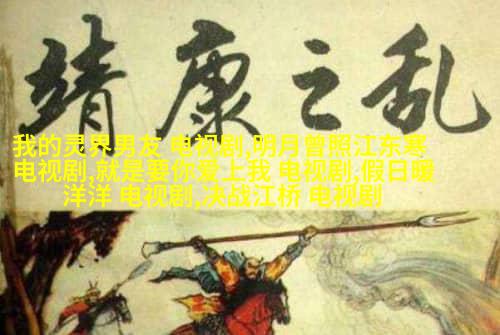 靖康之乱
我的灵界男友 电视剧,明月曾照江东寒
电视剧,就是要你爱上我 电视剧,假日暖
洋洋 电视剧,决战江桥 电视剧